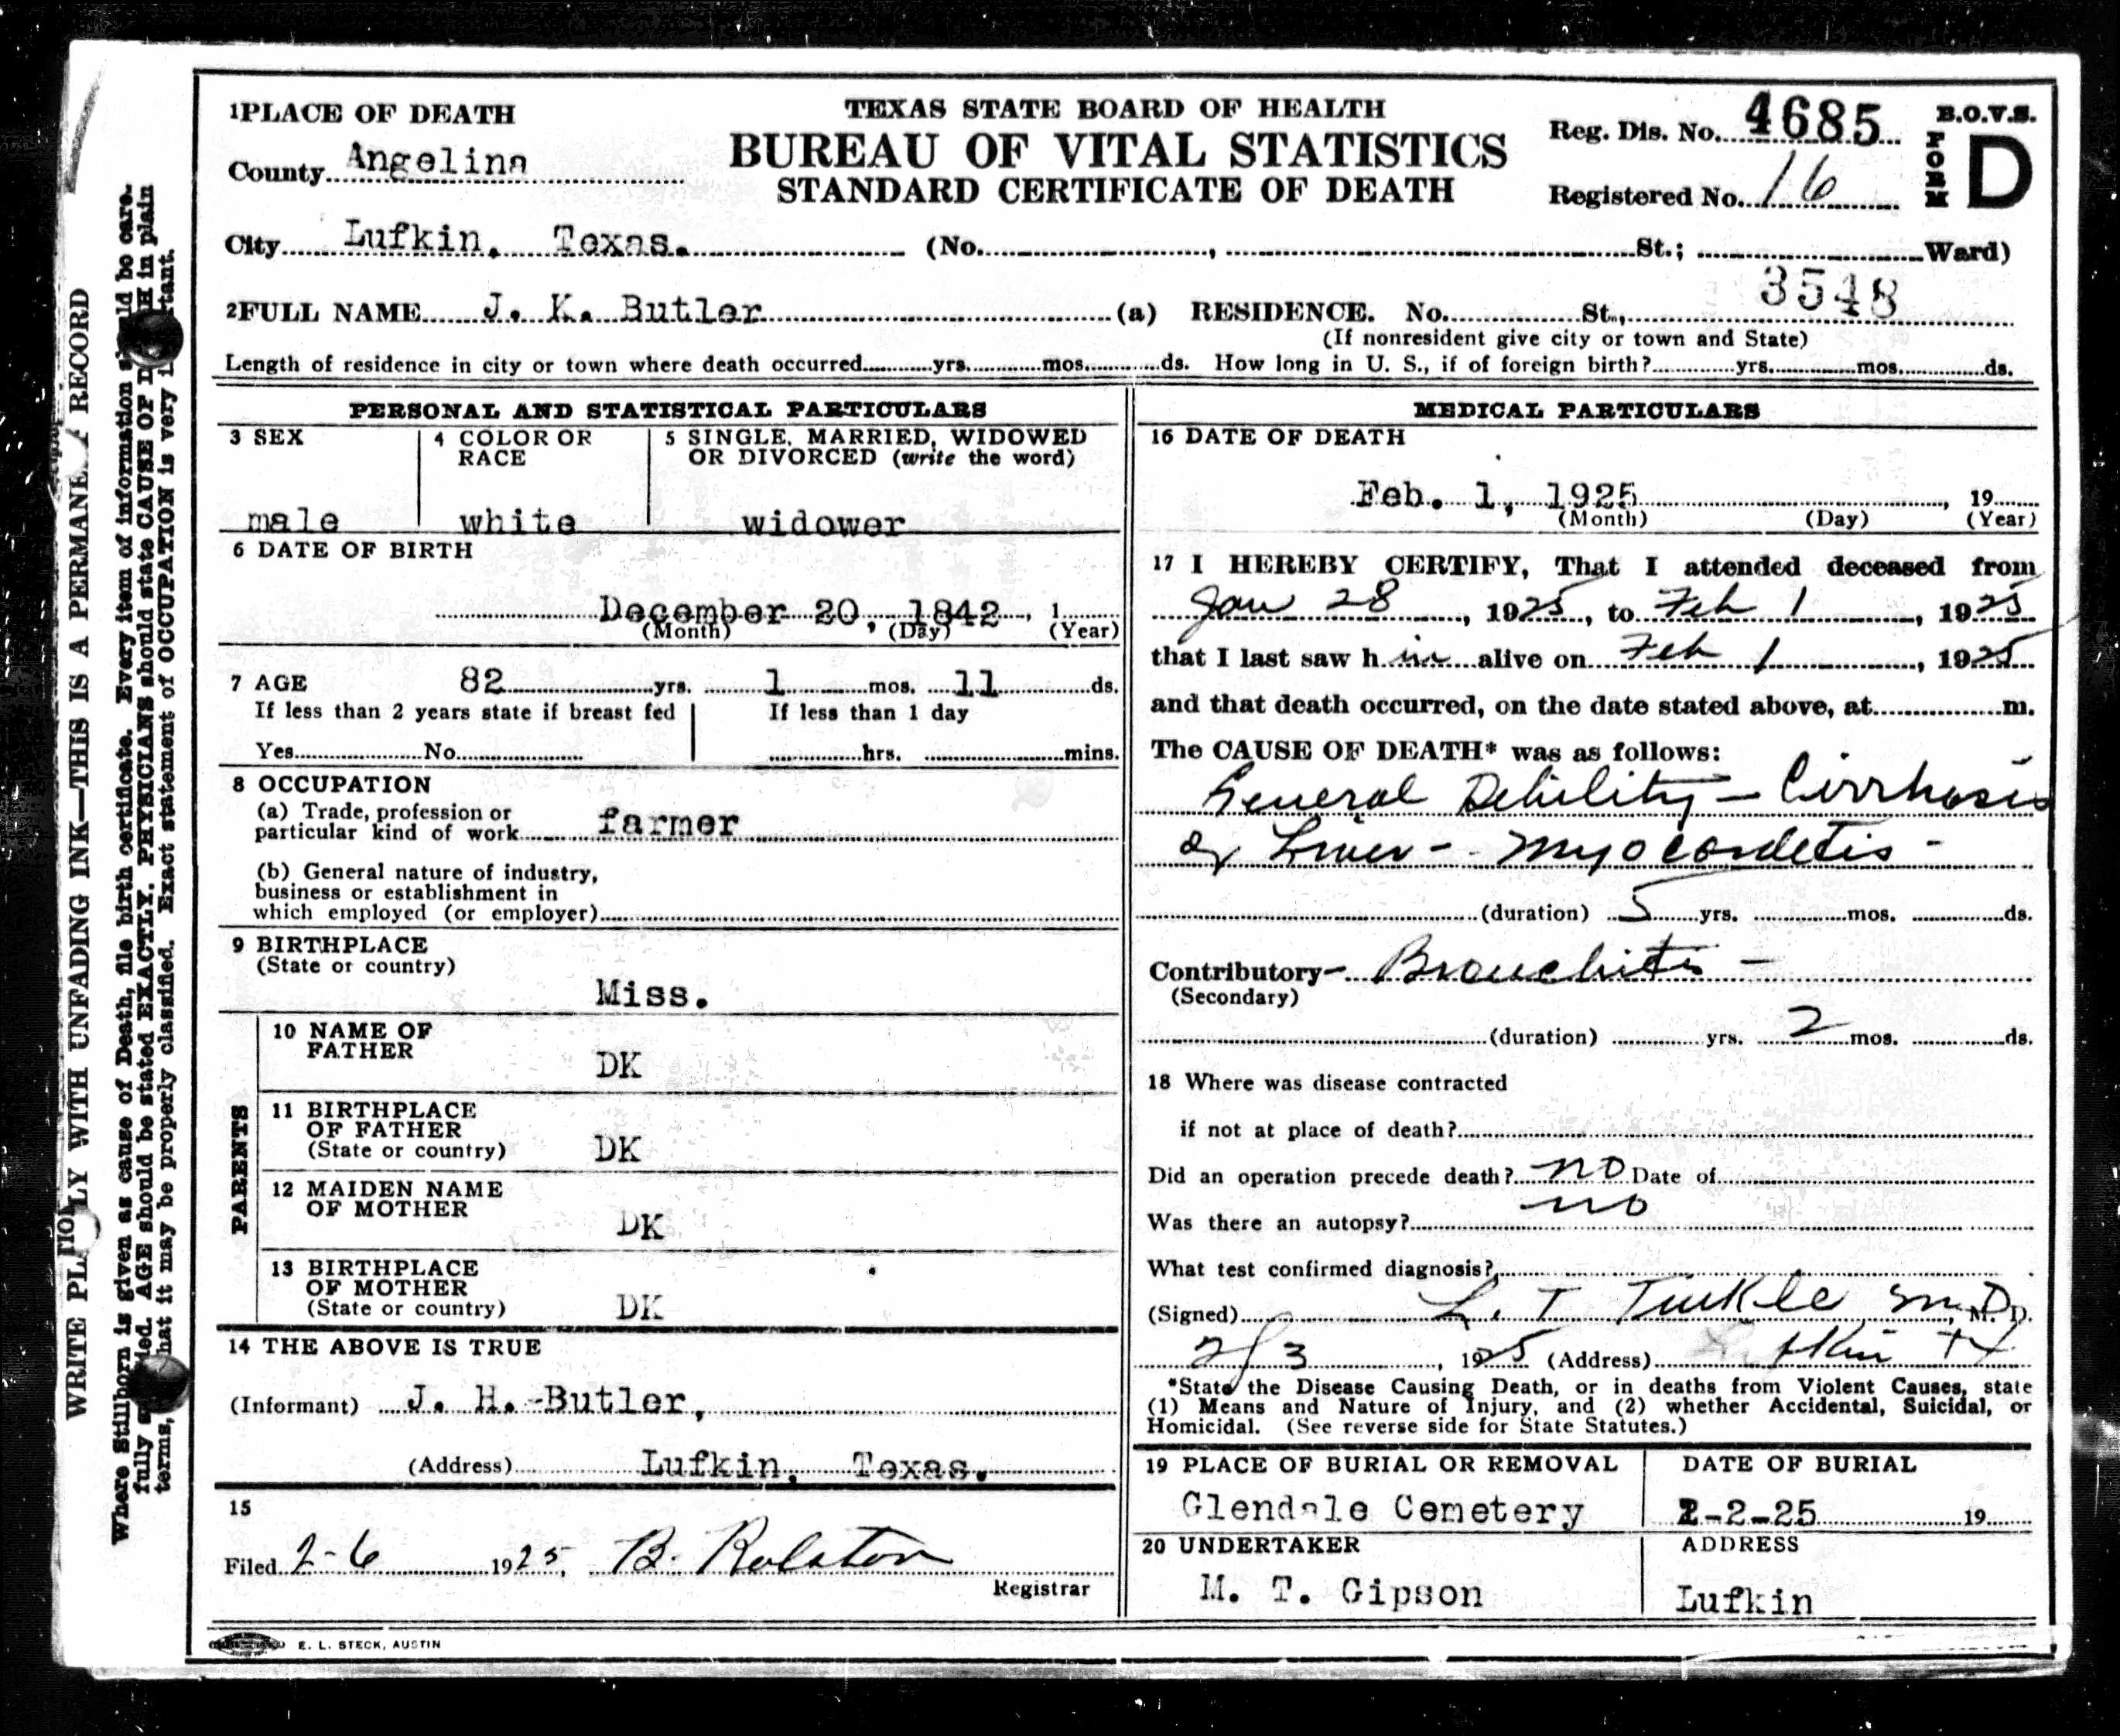 1PLACE OF DEATH
TEXAS STATE BOARD OF HEALTH
BUREAU OF VITAL STATISTICS
STANDARD CERTIFICATE OF DEATH
Reg. Dis. No. 4685
Registered No. 16
B.O.V.S.
FORM D
County Angelina
City Lufkin, Texas. (No. , St.; Ward)
3548
2FULL NAME J. K. Butler (a) RESIDENCE. No. St.,
(If nonresident give city or town and State)
Length of residence in city or town where death occurred yrs. mos. ds. How long in U. S., if of foreign birth? yrs. mos. ds.
PERSONAL AND STATISTICAL PARTICULARS
3 SEX
male
4 COLOR OR
RACE
white
5 SINGLE, MARRIED, WIDOWED
OR DIVORCED (write the word)
widower
6 DATE OF BIRTH
December 20, 1842, 1
(Month) (Day) (Year)
7 AGE 82 yrs. 1 mos. 11 ds.
If less than 2 years state if breast fed
If less than 1 day
Yes No
hrs. mins.
8 OCCUPATION
(a) Trade, profession or
particular kind of work farmer
(b) General nature of industry,
business or establishment in
which employed (or employer)
9 BIRTHPLACE
(State or country)
Miss.
PARENTS
10 NAME OF
FATHER
DK
11 BIRTHPLACE
OF FATHER
(State or country) DK
12 MAIDEN NAME
OF MOTHER
DK
13 BIRTHPLACE
OF MOTHER
(State or country) DK
14 THE ABOVE IS TRUE
(Informant) J. H. Butler,
(Address) Lufkin, Texas.
15
Filed 2-6 1925, B. Rolston
Registrar
E. L. STECK, AUSTIN
MEDICAL PARTICULARS
16 DATE OF DEATH
Feb. 1, 1925 , 19
(Month) (Day) (Year)
17 I HEREBY CERTIFY, That I attended deceased from
Jan 28, 1925, to Feb 1, 1925
that I last saw h im alive on Feb 1, 1925
and that death occurred, on the date stated above, at m.
The CAUSE OF DEATH* was as follows:
General Debility - Cirrhosis
of Liver - Myocardetis -
(duration) 5 yrs. mos. ds.
Contributory- Bronchitis -
(Secondary)
(duration) yrs. 2 mos. ds.
18 Where was disease contracted
if not at place of death?
Did an operation precede death? no Date of
Was there an autopsy? no
What test confirmed diagnosis?
(Signed) L. T Tinkle M.D., M. D.
2/3, 1925 (Address) Lufkin Tx
*State the Disease Causing Death, or in deaths from Violent Causes, state
(1) Means and Nature of Injury, and (2) whether Accidental, Suicidal, or
Homicidal. (See reverse side for State Statutes.)
19 PLACE OF BURIAL OR REMOVAL
Glendale Cemetery
DATE OF BURIAL
2-2-25 19
20 UNDERTAKER
M. T. Gipson
ADDRESS
Lufkin
WRITE PLAINLY WITH UNFADING INK—THIS IS A PERMANENT RECORD
Where Stillborn is given as cause of Death, file birth certificate. Every item of information should be care-
fully supplied. AGE should be stated EXACTLY. PHYSICIANS should state CAUSE OF DEATH in plain
terms, that it may be properly classified. Exact statement of OCCUPATION is very important.